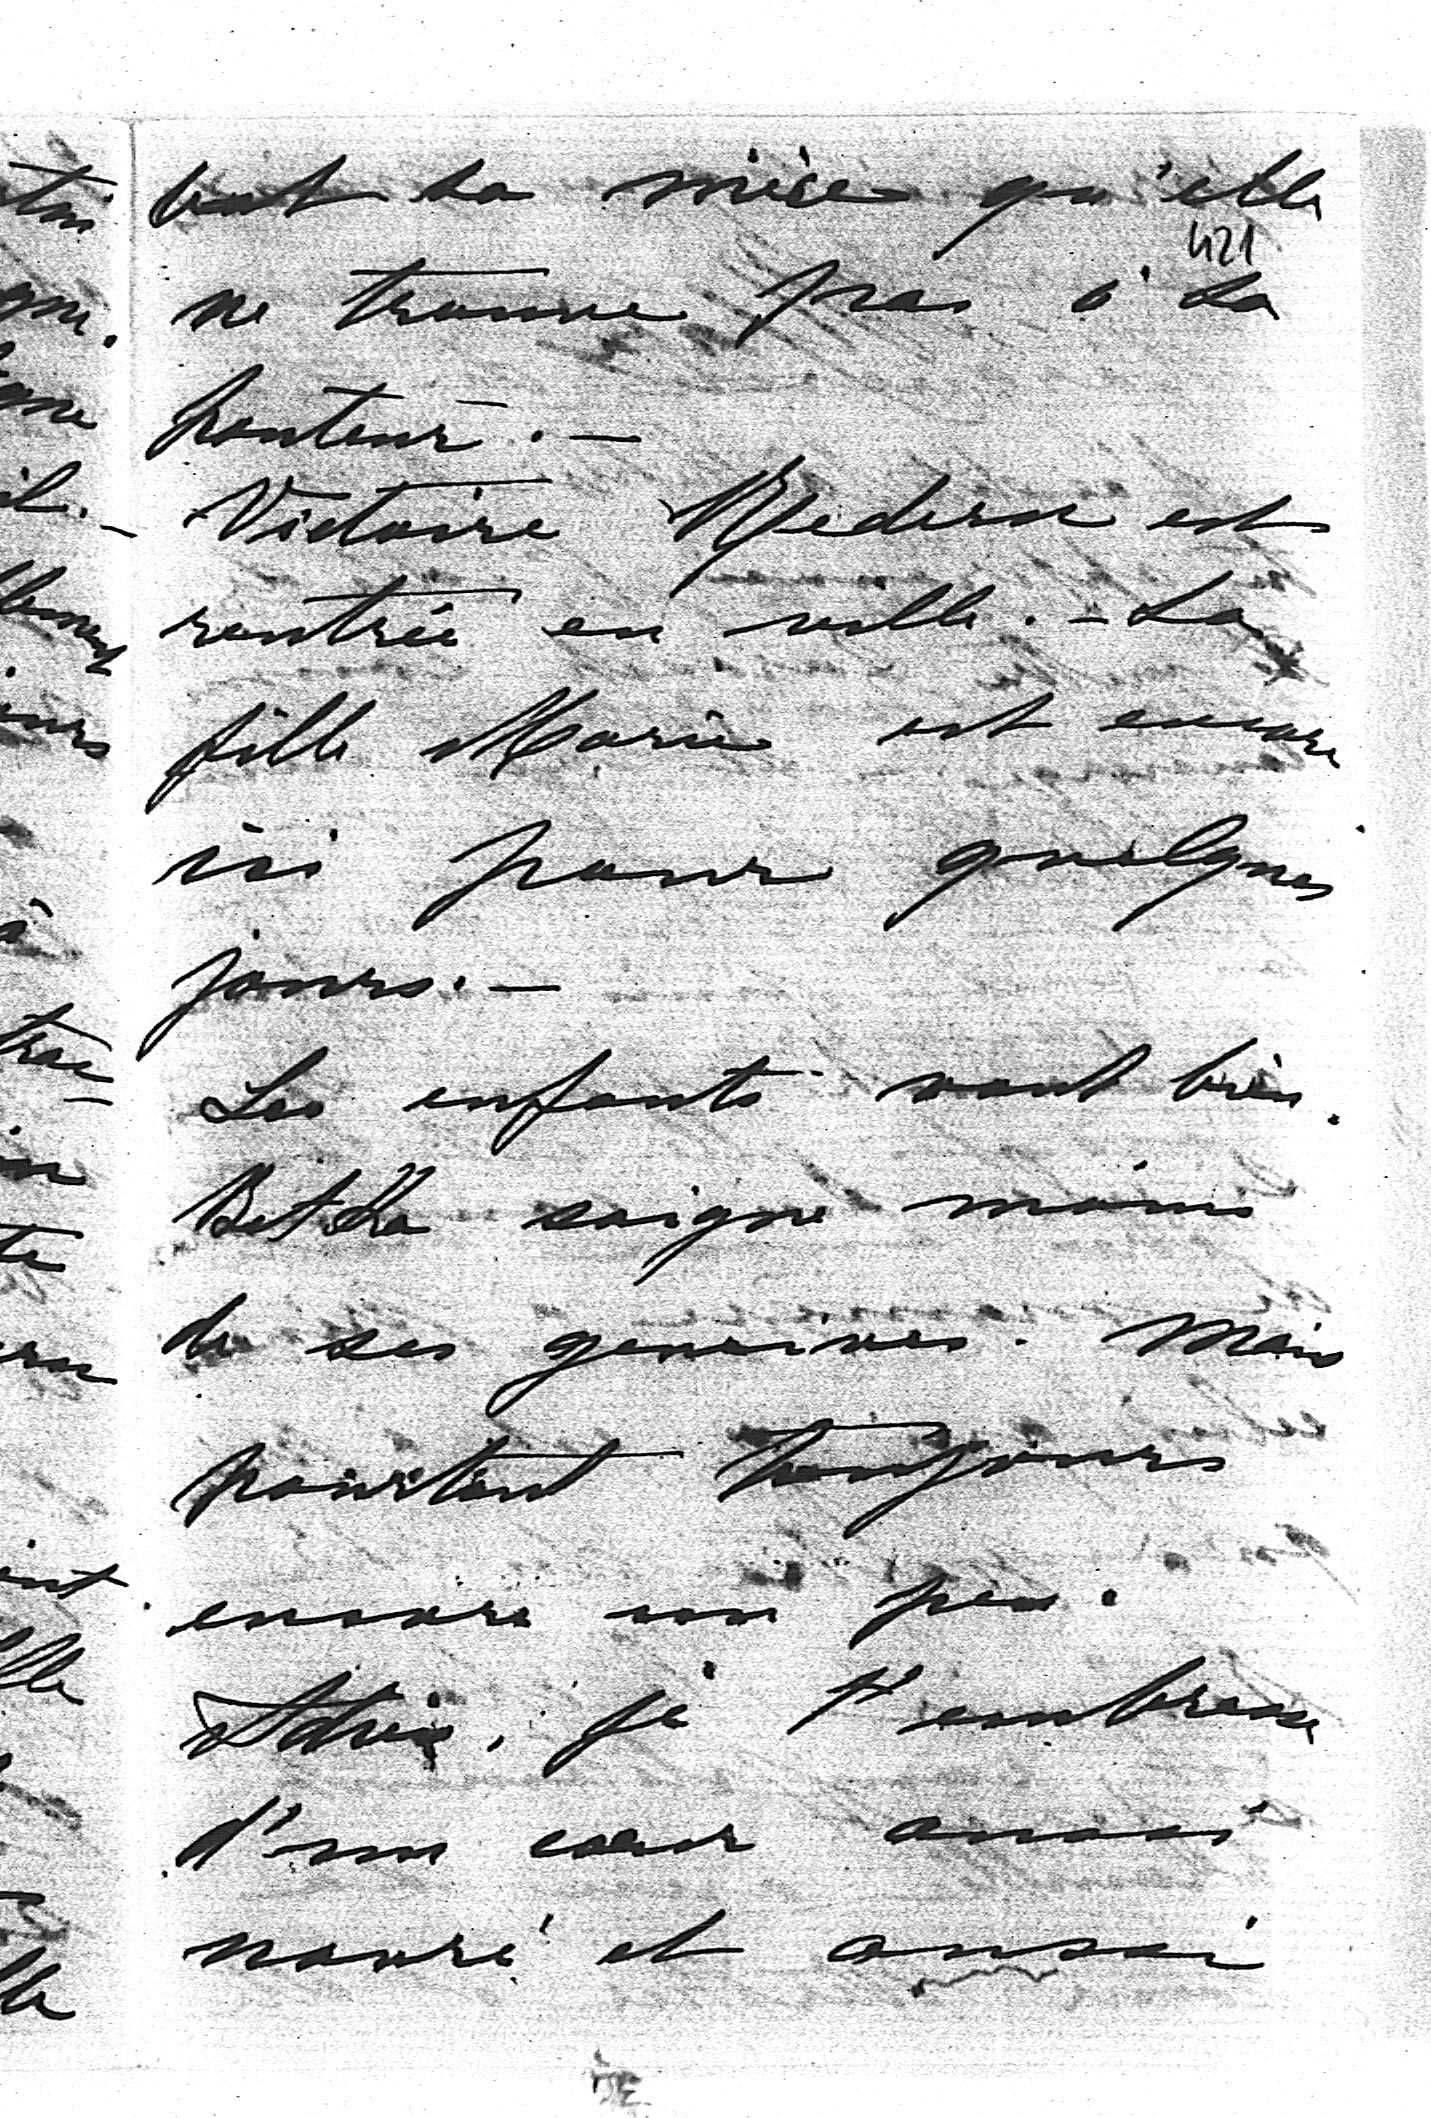 tout sa mère qu'elle
421
ne trouve pas à la
hauteur. —
Victoire est
rentrée en ville. – La
fille Marie est encore
ici pour quelques
jours. —
Les enfants vont bien.
Betka saigne moins
de ses gencives. Mais
pourtant toujours
encore un peu.
je t'embrasse
d'un cœur aussi
navré et aussi